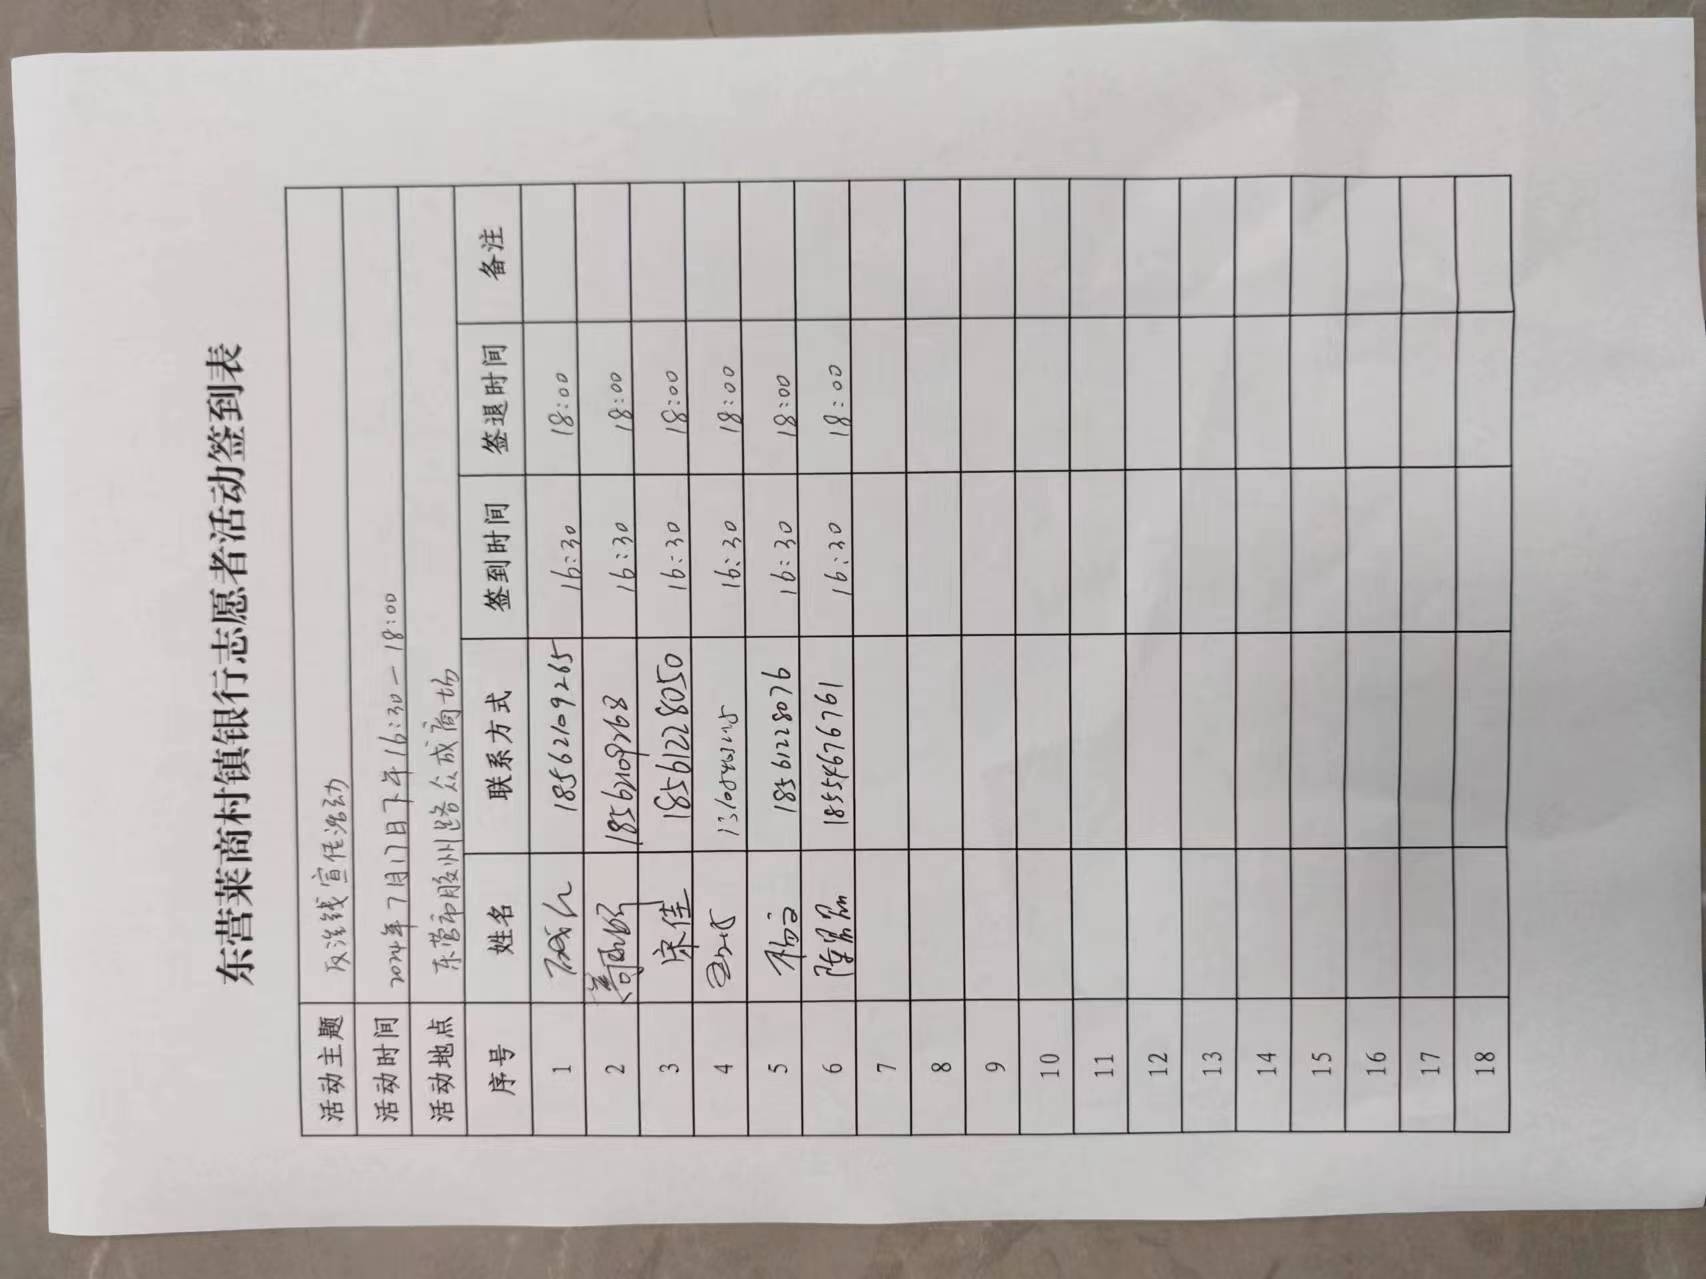 东营莱商村镇银行志愿者活动签到表
活动主题 反洗钱宣传活动
活动时间 2024年7月17日下午16:30—18:00
活动地点 东营市胶州路众成商场
序号 姓名 联系方式 签到时间 签退时间 备注
1 18562109265 16:30 18:00
2 18562109268 16:30 18:00
3 宋佳 18561228050 16:30 18:00
4 16:30 18:00
5 18561228076 16:30 18:00
6 18554676761 16:30 18:00
7
8
9
10
11
12
13
14
15
16
17
18